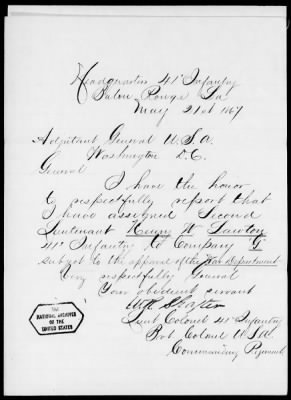 Headquarters 41st Infantry
Baton Rouge La
May 21st 1867
Adjutant General U.S.A.
Washington D.C.
General
I have the honor
to respectfully report that
I have assigned Second
Lieutenant Henry W Lawton
41st Infantry to Company "G"
subject to the approval of the War Department
Very respectfully General
Your obedient servant
Wm R Shafter
Lieut Colonel 41st Infantry
Bvt Colonel U.S.A.
Commanding Regiment
THE
NATIONAL ARCHIVES
OF THE
UNITED STATES